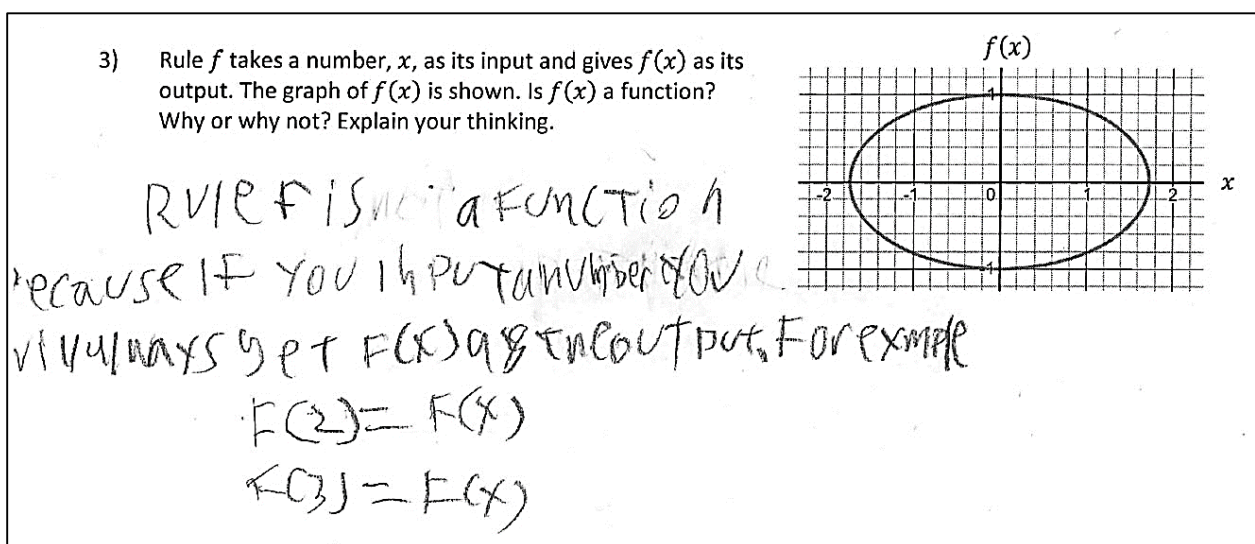 3) Rule f takes a number, x, as its input and gives f(x) as its
output. The graph of f(x) is shown. Is f(x) a function?
Why or why not? Explain your thinking.
f(x)
1
-2 -1 0 1 2
x
-1
Rule f is a function
ecause if you input a number you
always get F(x) as the output. For exmple
F(2) = F(x)
F(3) = F(x)